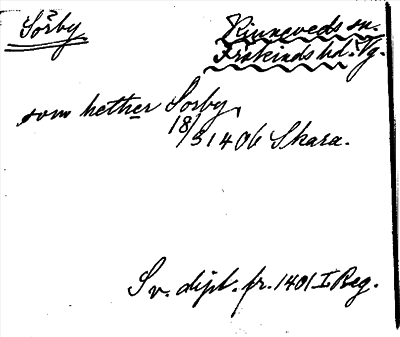 Sörby
Kinneveds sn.
Frökinds hd. Vg.
som hether Sorby,
18/3 1406 Skara.
Sv. dipl. fr. 1401 I Reg.